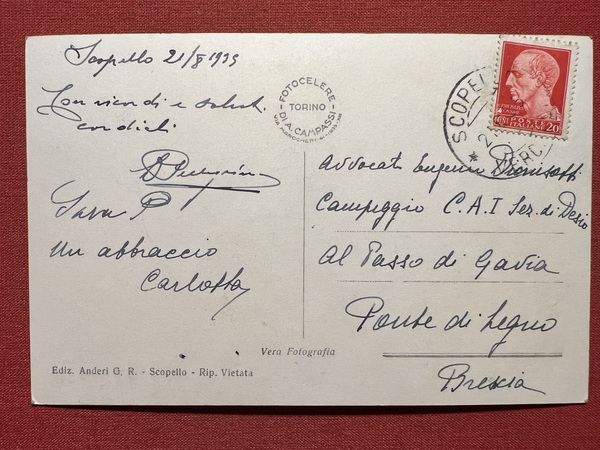 Scopello 21/8 1939
Con ricordi e saluti
cordiali
Sara P
un abbraccio
Carlotta
FOTOCELERE
TORINO
DI A. CAMPASSI
SCOPEL
POSTE ITALIANE
20
Avvocato Eugenio Dionisotti
Campeggio C.A.I Sez. di Desio
Al Passo di Gavia
Ponte di Legno
Brescia
Vera Fotografia
Ediz. Anderi G. R. - Scopello - Rip. Vietata